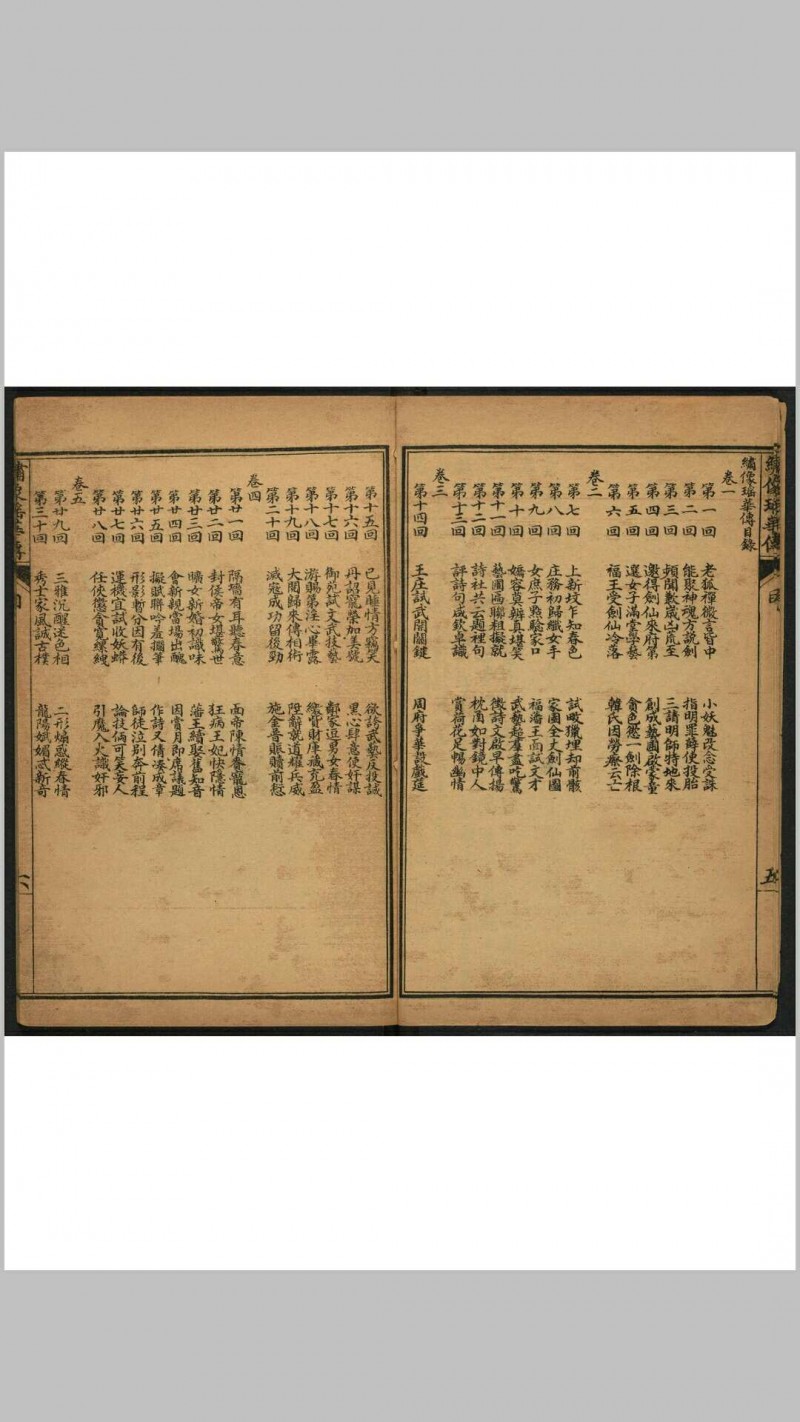 繡像瑤華傳
五
繡像瑤華傳目錄
卷一
第一回 老狐禪微言皆中 小妖魅改念受誅
第二回 能聚神魂方說劍 指明罪孽使投胎
第三回 頻聞歉歲凶荒至 三請明師特地來
第四回 邀得劍仙來府第 創成藝圃啟蒙童
第五回 選女子滿堂學藝 貪色慾一劍除根
第六回 福王受劍仙冷落 韓氏因勞瘵云亡
卷二
第七回 上新坟乍知春色 試畋獵埋却前骸
第八回 庄務初歸孅女手 家園全丈劍仙圖
第九回 女庶子點驗家口 福藩王面試文才
第十回 嬌容莫辨真堪笑 武藝超羣盡吃驚
第十一回 藝圃兩聯粗擬就 徵詩文啟早傳揚
第十二回 詩社共云題裡句 枕函如對鏡中人
第十三回 評詩句咸欽卓識 賞荷花足暢幽情
卷三
第十四回 王庄試武開關鍵 周府爭華設嚴筵
第十五回 已見睡情方竊笑 欲誇武藝反投誠
第十六回 丹詔寵榮加美號 黑心肆意使奸謀
第十七回 御苑試文武技藝 鄰家逗男女春情
第十八回 游賜第注心畢露 繳貲財庫藏充盈
第十九回 大閱歸來傳相術 陞辭就道耀兵威
第二十回 滅寇成功留後勁 施金普賑贖前愆
卷四
第廿一回 隔墻有耳聽春意 面帝陳情眷寵恩
第廿二回 封侯帝女堪驚世 狂病王妃快隱情
第廿三回 曠女新婚初識味 藩王續娶舊知音
第廿四回 會新親當場出醜 因賞月即席議題
第廿五回 擬賦聯吟羞擱筆 作詩又倩湊成章
第廿六回 形影暫分因有後 師徒泣別奔前程
第廿七回 運機宜試收妖蟒 論技倆可笑妄人
第廿八回 任俠懲貪賞縲絏 引魔入火識奸邪
卷五
第廿九回 三雅沉酣迷色相 二形煽惑縱春情
第三十回 秀士家風誠古樸 龍陽斌媚忒新奇